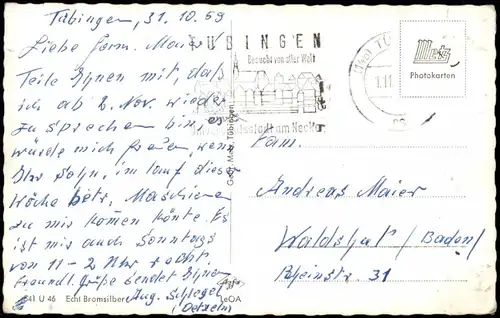 Tübingen, 31.10.69
Liebe Fam. Maier!
Teile Ihnen mit, daß
ich ab 2. Nov. wieder
zu sprechen bin, es
würde mich freuen, wenn
Ihr Sohn, im lauf dieser
Woche betr. Maschine
zu mir kommen könnte. Es
ist mir auch Sonntags
von 11-2 Uhr recht
Freundl. Grüße sendet Ihnen
Aug. Schlegel
TÜBINGEN
Besucht von aller Welt
am Neckar
Metz
Photokarten
Gebr. Metz, Tübingen
Fam.
Andreas Maier
Waldshut / Baden
Rheinstr. 31
841 U 46 Echt Bromsilber